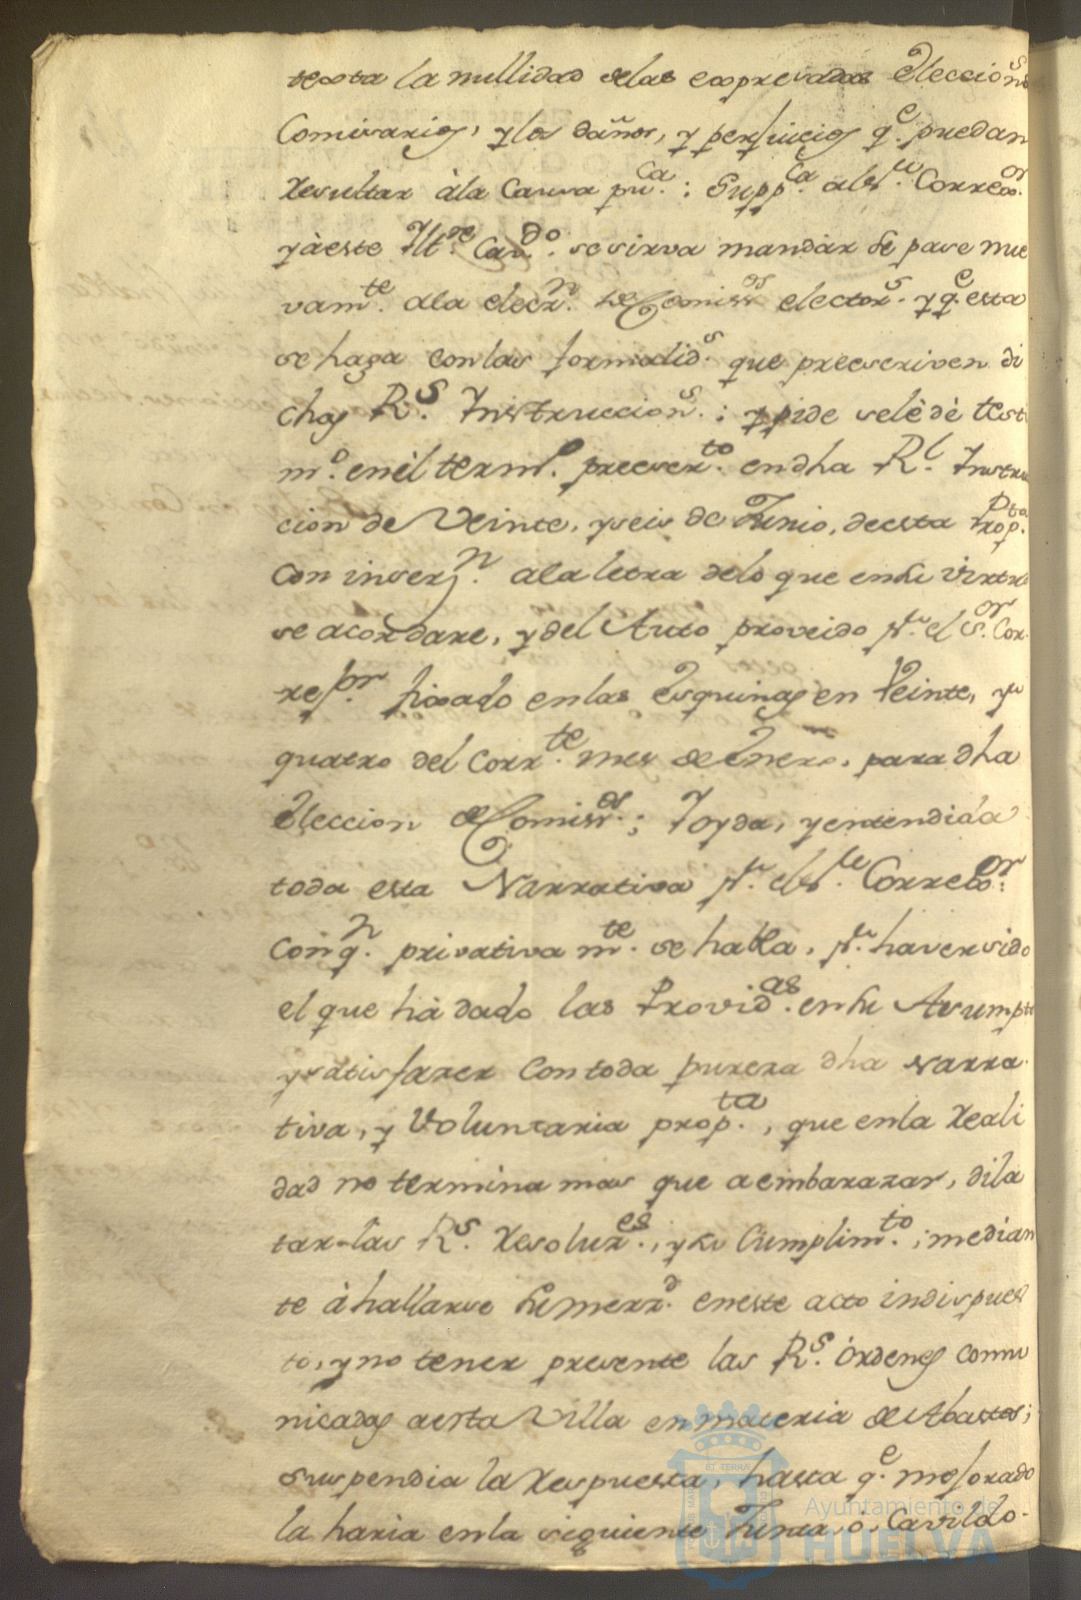 texta la nullidad delas expresadas Eleccion.s
Comisarios, y los daños, y perjuicios q.e puedan
Resultar àla Causa pu.ca: Supp.ca al S.r Correx.or
y à este Ill.e Cav.do se sirva mandàr Se pase nue
vam.te ala elecz.n de Comiss.os elector.s y q.e esta
se haga con las formalid.s que preescriven di
chas R.s Instruccion.s; y pide se lè dè testi
m.o en èl term.o preescr.to en dha R.l Instru
cion de Veinte, y seis de Junio, de esta Prop.ta
con inserz.n ala letra delo que en su virtud
se acordare, y del Auto proveido p.r el S.or Cor
rex.or fixado en las Esquinas en Veinte, y
quatro del Corr.te mes de Enero, para dha
Eleccion de Comiss.os; Y oyda, y entendida
toda esta Narrativa p.r el S.r Correx.or
con q.n privativam.te se habla, p.r haver sido
el que hà dado las Provid.as en su Asumpto
y satisfazer con toda pureza dha Narra
tiva, y Voluntaria prop.ta, que en la Reali
dad no termina mas que a embarazar, dila
tar las R.s Resoluz.es, y su Cumplim.to; median
te à hallarse su merz.d en este acto indispues
to, y no tener presente las R.s Òrdenes comu
nicadas a esta Villa en materia de Abastos;
Suspendia la Respuesta, hasta q.e mejorado
la haria en la siguiente Junta, ò, Cavildo.
Ayuntamiento de
HUELVA